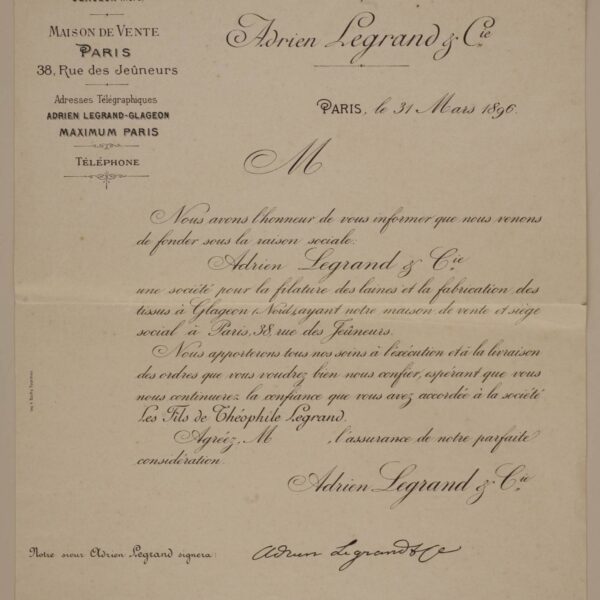 MAISON DE VENTE
PARIS
38, Rue des Jeûneurs
Adresses Télégraphiques
ADRIEN LEGRAND-GLAGEON
MAXIMUM PARIS
TÉLÉPHONE
Adrien Legrand & Cie
PARIS, le 31 Mars 1896.
M
Nous avons l'honneur de vous informer que nous venons
de fonder sous la raison sociale:
Adrien Legrand & Cie
une société pour la filature des laines et la fabrication des
tissus à Glageon (Nord) ayant notre maison de vente et siège
social à Paris, 38, rue des Jeûneurs.
Nous apporterons tous nos soins à l'exécution et à la livraison
des ordres que vous voudrez bien nous confier, espérant que vous
nous continuerez la confiance que vous avez accordée à la société
Les Fils de Théophile Legrand.
Agréez, M , l'assurance de notre parfaite
considération.
Adrien Legrand & Cie
Notre sieur Adrien Legrand signera:
Adrien Legrand & Cie